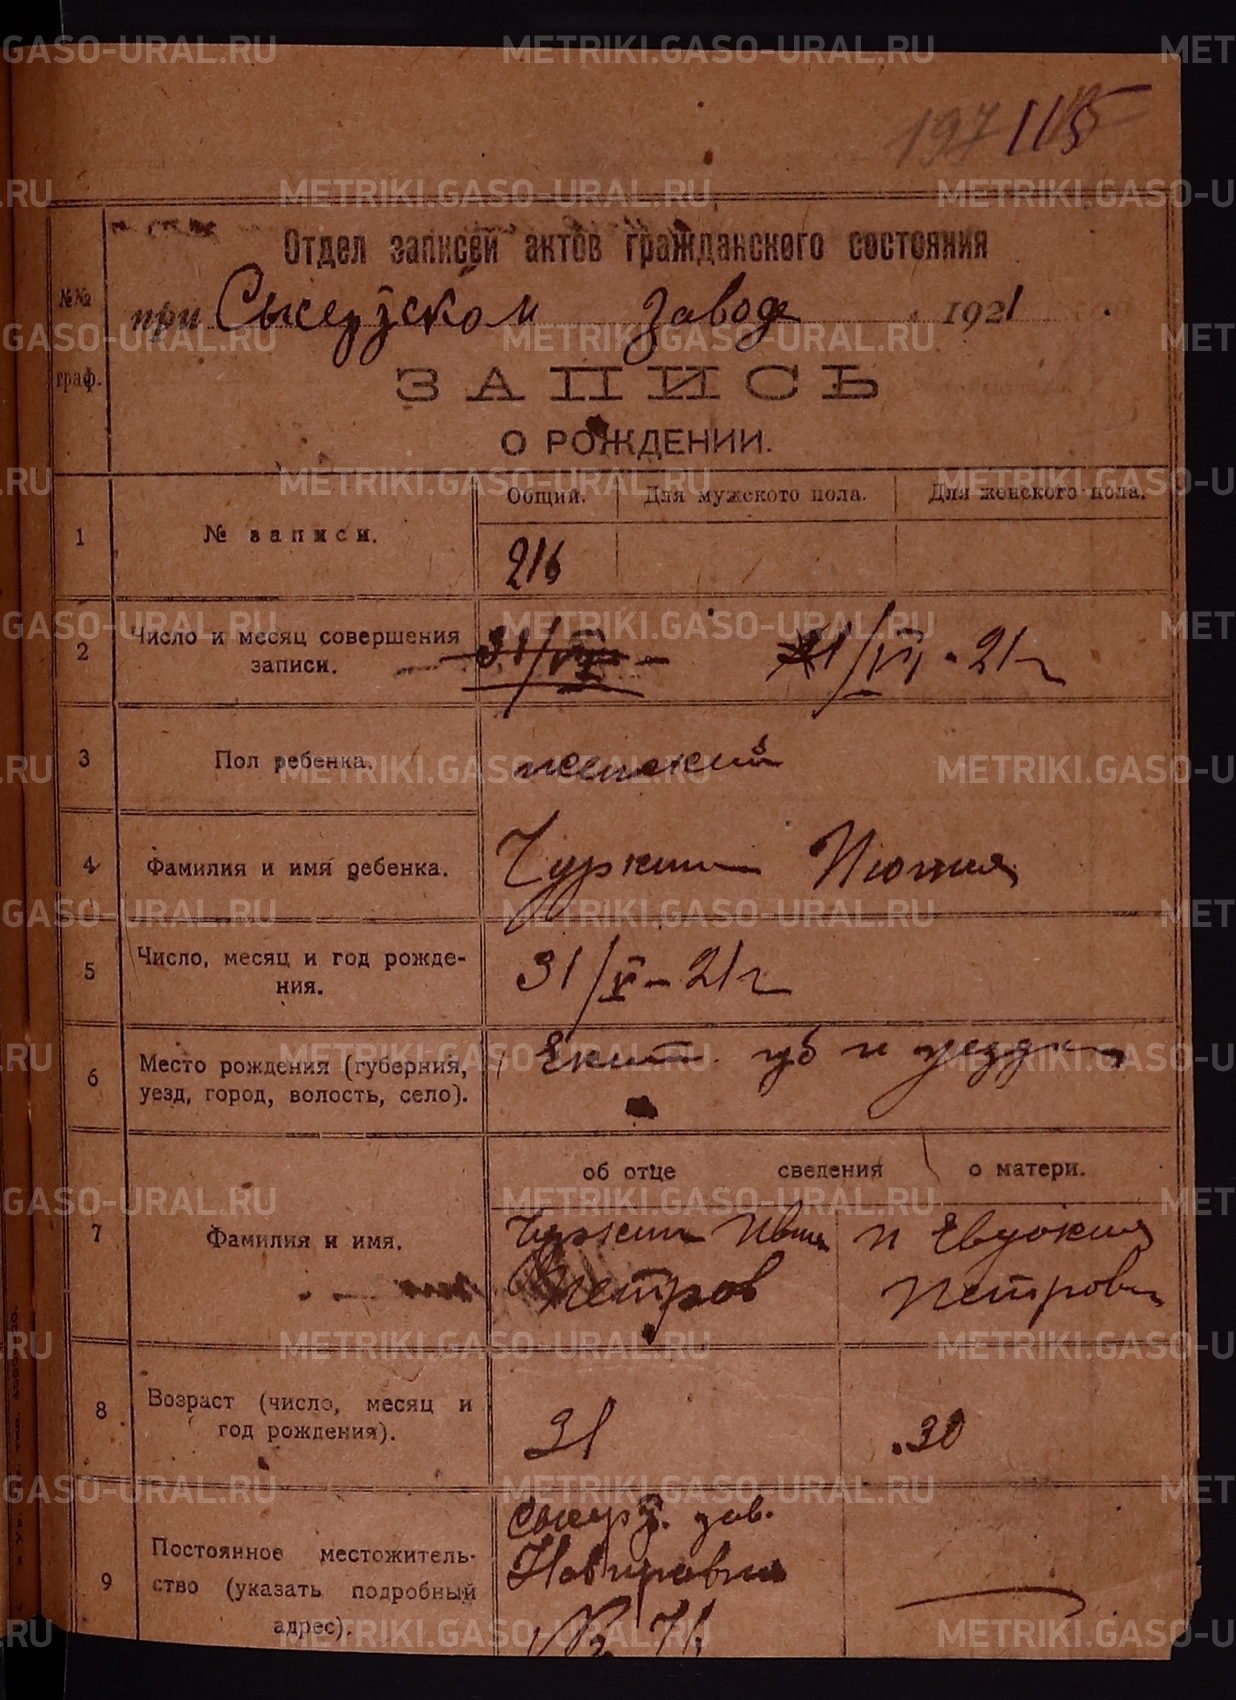 197 115
Отдел записей актов гражданского состояния
№№ граф.
при Сысертском заводе 1921
ЗАПИСЬ
О РОЖДЕНИИ.
Общий. Для мужского пола. Для женского пола.
1 № записи. 216
2 Число и месяц совершения
записи. 31/VII - 21 г
3 Пол ребенка. женский
4 Фамилия и имя ребенка. Чуркин
5 Число, месяц и год рожде-
ния. 31/V - 21 г
6 Место рождения (губерния,
уезд, город, волость, село). Екат. губ и уезда
об отце сведения о матери.
7 Фамилия и имя. Чуркин Иван и Евдокия
Петров Петровна
8 Возраст (число, месяц и
год рождения). 31 30
9 Постоянное местожитель-
ство (указать подробный
адрес). Сысерт. зав.
№ 71
METRIKI.GASO-URAL.RU